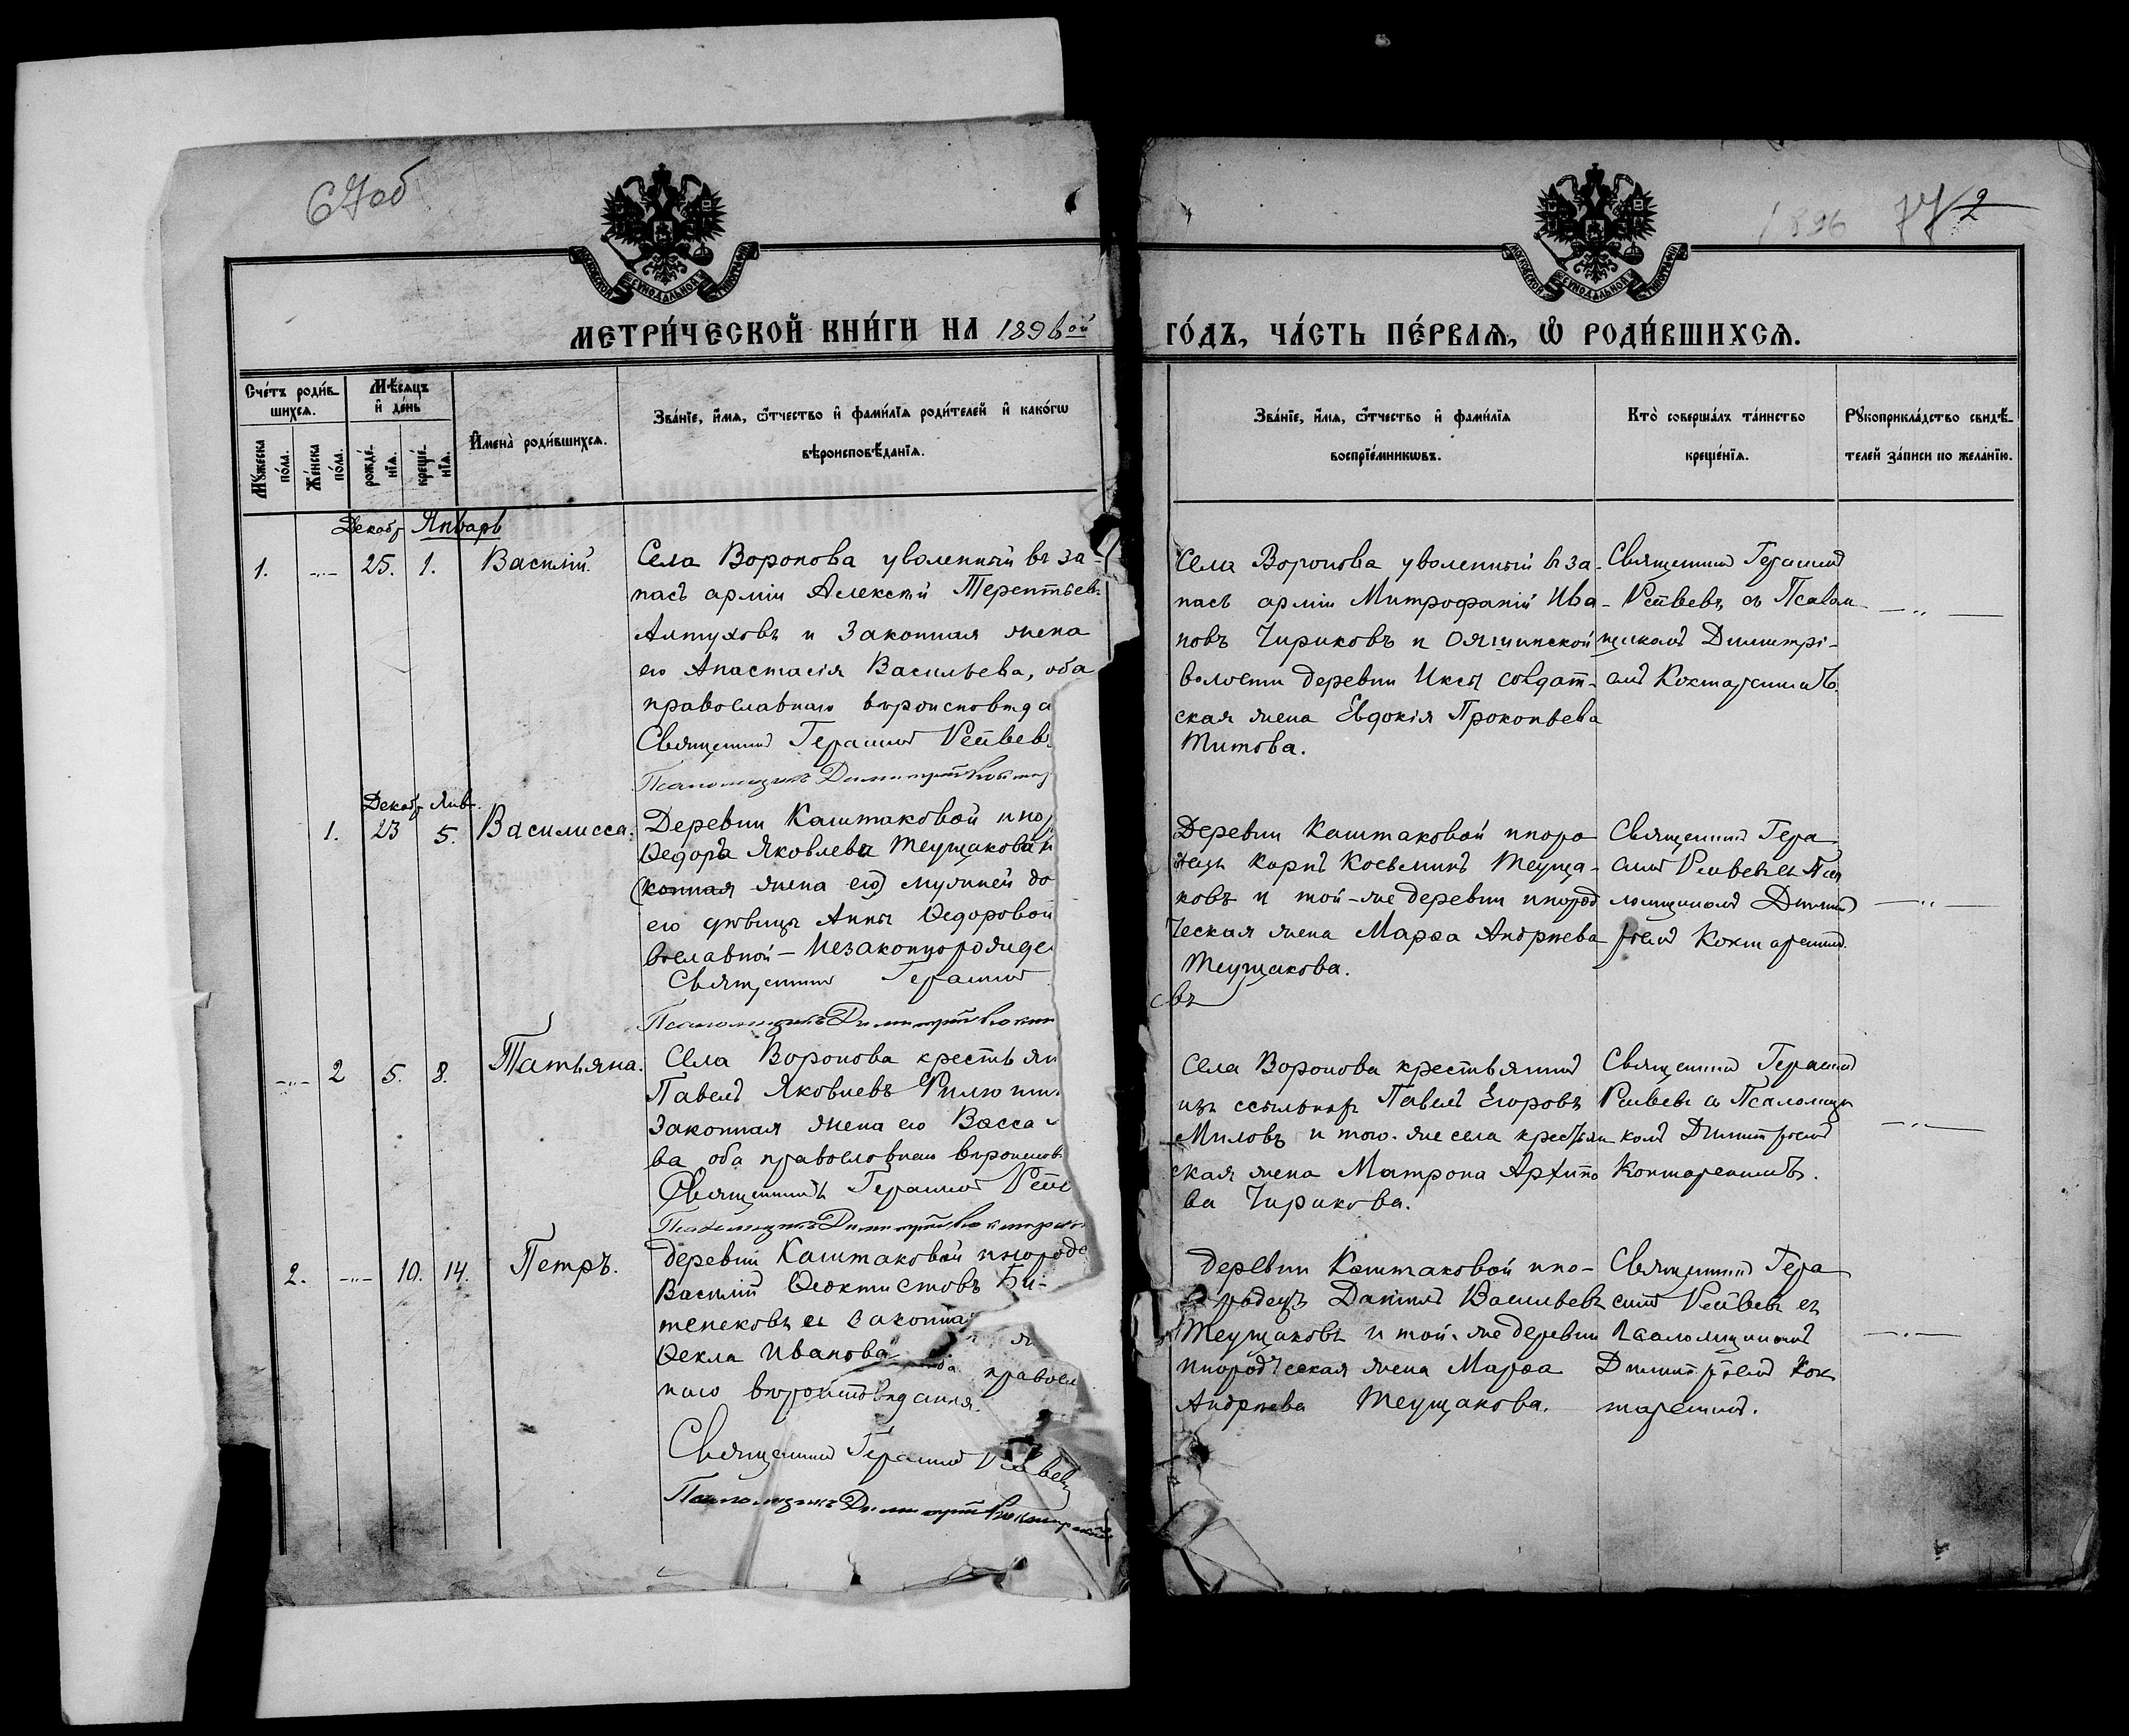 1896
2
МОСКОВСКОЙ СѴНОДАЛЬНОЙ ТИПОГРАФІИ
МОСКОВСКОЙ СѴНОДАЛЬНОЙ ТИПОГРАФІИ
МЕТРИ́ЧЕСКОЙ КНИ́ГИ НА 1896ой
ГО́ДЪ, ЧА́СТЬ ПЕ́РВАѦ, Ѡ҆ РОДИ́ВШИХСѦ.
Сче́тъ роди́в-
шихсѧ.
Мѣ́сѧцъ
и҆ де́нь
Мꙋ́жеска
по́ла.
Же́нска
по́ла.
рожде́-
нїѧ.
креще́-
нїѧ.
И҆мена̀ роди́вшихсѧ.
Зва́нїе, и҆́мѧ, ѻ҆́тчество и҆ фами́лїѧ роди́телей и҆ како́гѡ
вѣроисповѣ́данїѧ.
Зва́нїе, и҆́мѧ, ѻ҆́тчество и҆ фами́лїѧ
воспрїе́мникѡвъ.
Кто̀ соверша́лъ та́инство
креще́нїѧ.
Рꙋкоприкла́дство свидѣ́-
телей за́писи по жела́нїю.
Декабр Январь
1. -"- 25. 1. Василій.
Села Воронова уволенный въ за-
пасъ арміи Алексѣй Терентьевъ
Алтуховъ и законная жена
его Анастасія Васильева, оба
православнаго вѣроисповѣда
Священникъ Герасимъ
Псаломщикъ Димитрій
Села Воронова уволенный въ за-
пасъ арміи Митрофаній Ива-
новъ Чириковъ и Ояшинской
волости деревни Иксы солдат-
ская жена Евдокія Прокопьева
Титова.
Священникъ Герасимъ
съ Псалом-
щикомъ Димитрі-
емъ
-"-
Декабр Янв.
1. 23 5. Василисса.
Деревни Каштаковой инор
Ѳедора Яковлева Теущакова и
(конная жена его) мужней до
его дѣвицы Анны Ѳедоровой
вославной - незаконнорожде
Священникъ Герасимъ
Псаломщикъ Димитрій
Деревни Каштаковой иноро
децъ Карпъ Косьминъ Теуща-
ковъ и той-же деревни инород
ческая жена Марѳа Андреева
Теущакова.
въ
Священникъ Гера
симъ съ Пса
ломщикомъ Димит
ріемъ
-"-
-"- 2 5. 8. Татьяна.
Села Воронова крестьян
Павелъ Яковлевъ
законная жена его Васса
ва оба православнаго вѣроиспов
Священникъ Герасимъ
Псаломщикъ Димитрій
Села Воронова крестьянинъ
изъ ссыльныхъ Павелъ Егоровъ
Миловъ и того-же села крестьян
ская жена Матрона Архипо
ва Чирикова.
Священникъ Герасимъ
съ Псаломщи
комъ Димитріемъ
-"-
2. -"- 10. 14. Петръ.
Деревни Каштаковой инороде
Василій Ѳеоктистовъ Би-
тенековъ и законна
Ѳекла Иванова оба правосл
наго вѣроисповѣданія.
Священникъ Герасимъ
Псаломщикъ Димитрій
Деревни Каштаковой ино-
родецъ Даніилъ Васильевъ
Теущаковъ и той-же деревни
инородческая жена Марѳа
Андреева Теущакова.
Священникъ Гера
симъ съ
Псаломщикомъ
Димитріемъ
-"-